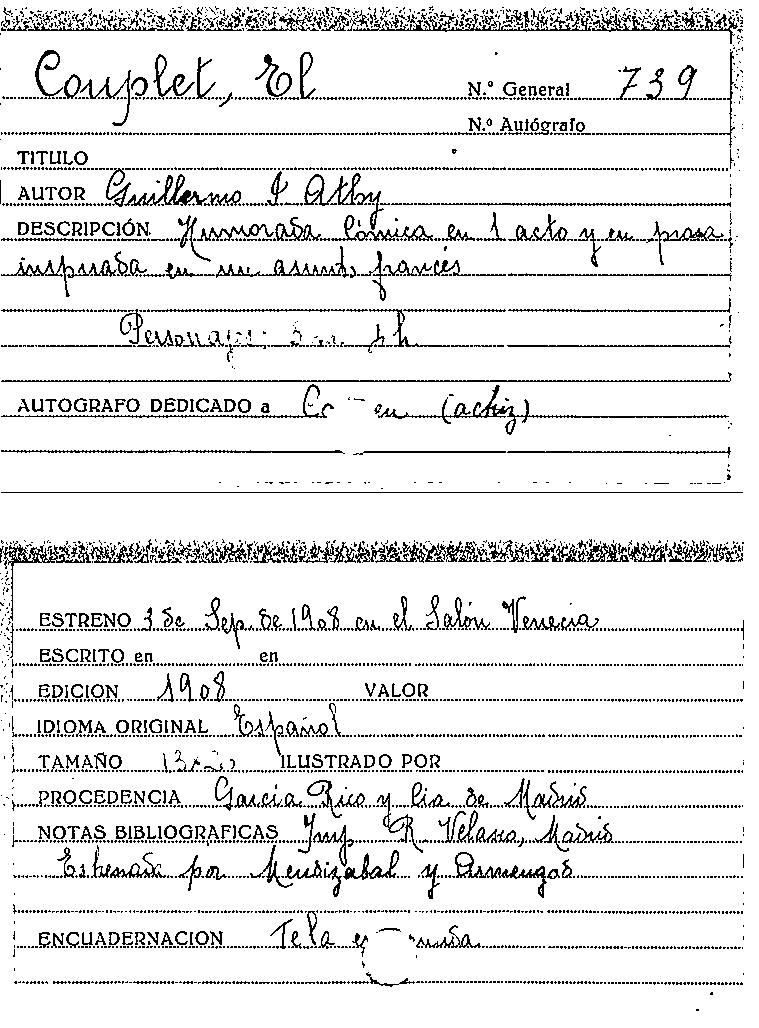 Couplet, El N.º General 739
N.º Autógrafo
TITULO
AUTOR Guillermo J Athy
DESCRIPCIÓN Humorada cómica en 1 acto y en prosa
inspirada en un asunto francés
Personajes:
AUTOGRAFO DEDICADO a (actriz)
ESTRENO 3 de Sep. de 1908 en el Salón Venecia
ESCRITO en en
EDICION 1908 VALOR
IDIOMA ORIGINAL Español
TAMAÑO ILUSTRADO POR
PROCEDENCIA García Rico y Cia de Madrid
NOTAS BIBLIOGRAFICAS Imp R. Velasco, Madrid
Estrenada por Mendizabal y Armengod
ENCUADERNACION Tela